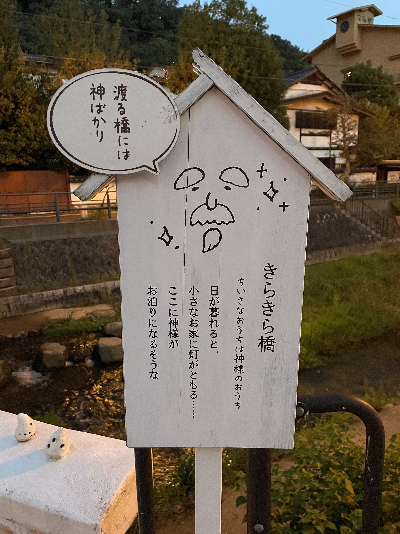 渡る橋には
神ばかり
きらきら橋
ちいさなおうちは神様のおうち
日が暮れると、
小さなお家に灯がともる……
ここに神様が
お泊りになるそうな